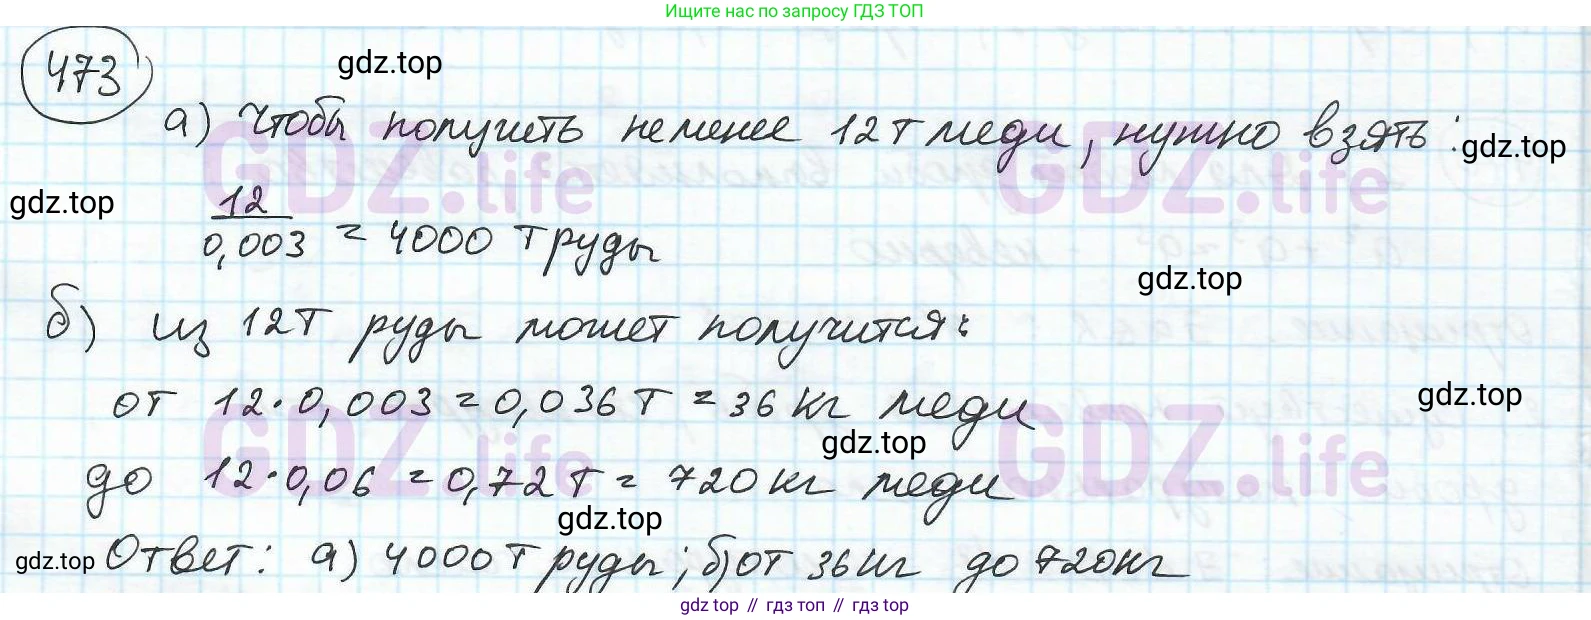 Ищите нас по запросу ГДЗ ТОП
473
gdz.top
а) Чтобы получить не менее 12т меди, нужно взять:
gdz.top
GDZ.life GDZ.life
gdz.top
12
0,003 = 4000 т руды
gdz.top
б) из 12т руды может получится:
gdz.top
от 12·0,003=0,036т = 36 кг меди
GDZ.life GDZ.life
gdz.top
до 12·0,06 = 0,72т = 720 кг меди
gdz.top
gdz.top
Ответ: а) 4000т руды; б) от 36кг до 720кг
gdz top // гдз топ // gdz top